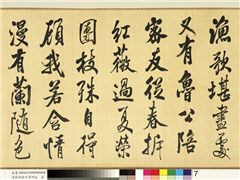 漁歌堪畫處
又有魯公陪
密友從春拆
紅薇過夏榮
團枝殊自得
顧我若含情
漫有蘭隨色
7